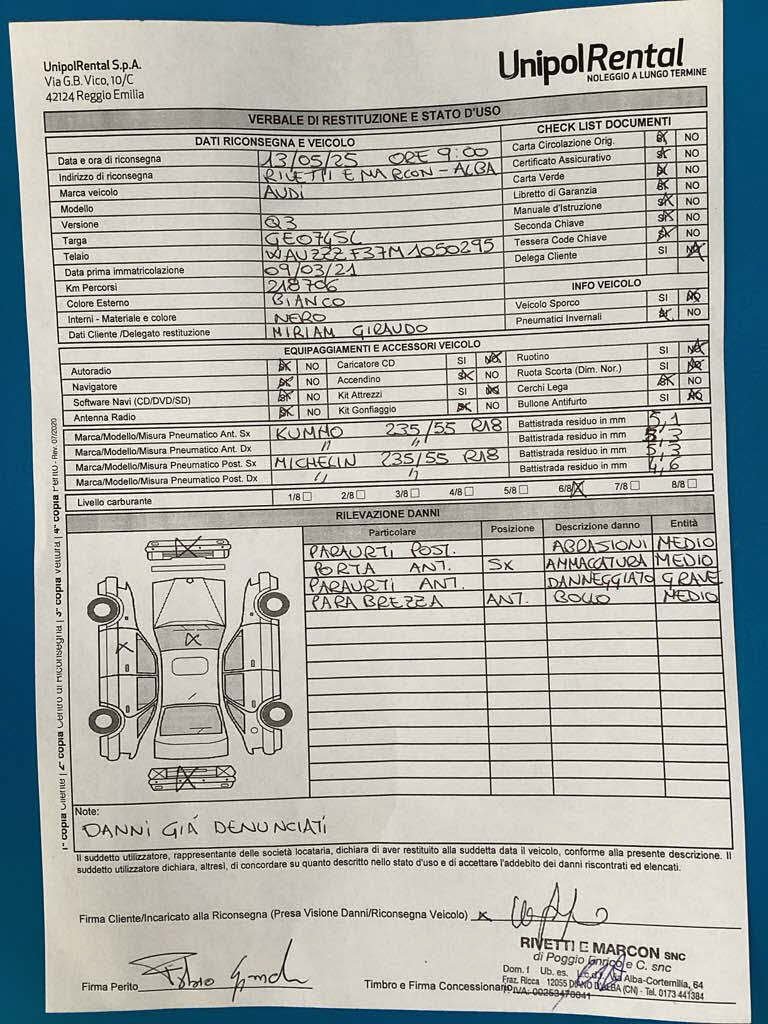 UnipolRental S.p.A.
Via G.B. Vico, 10/C
42124 Reggio Emilia
UnipolRental
NOLEGGIO A LUNGO TERMINE
VERBALE DI RESTITUZIONE E STATO D'USO
DATI RICONSEGNA E VEICOLO
Data e ora di riconsegna 13/05/25 ORE 9:00
Indirizzo di riconsegna RIVETTI E MARCON - ALBA
Marca veicolo AUDI
Modello
Versione Q3
Targa GE074SL
Telaio WAUZZZF37M1050295
Data prima immatricolazione 09/03/21
Km Percorsi 218706
Colore Esterno BIANCO
Interni - Materiale e colore NERO
Dati Cliente /Delegato restituzione MIRIAM GIRAUDO
CHECK LIST DOCUMENTI
Carta Circolazione Orig. SI NO
Certificato Assicurativo SI NO
Carta Verde SI NO
Libretto di Garanzia SI NO
Manuale d'Istruzione SI NO
Seconda Chiave SI NO
Tessera Code Chiave SI NO
Delega Cliente SI NO
INFO VEICOLO
Veicolo Sporco SI NO
Pneumatici Invernali SI NO
EQUIPAGGIAMENTI E ACCESSORI VEICOLO
Autoradio SI NO Caricatore CD SI NO Ruotino SI NO
Navigatore SI NO Accendino SI NO Ruota Scorta (Dim. Nor.) SI NO
Software Navi (CD/DVD/SD) SI NO Kit Attrezzi SI NO Cerchi Lega SI NO
Antenna Radio SI NO Kit Gonfiaggio SI NO Bullone Antifurto SI NO
Marca/Modello/Misura Pneumatico Ant. Sx KUMHO 235/55 R18 Battistrada residuo in mm 5,1
Marca/Modello/Misura Pneumatico Ant. Dx " " Battistrada residuo in mm 5,2
Marca/Modello/Misura Pneumatico Post. Sx MICHELIN 235/55 R18 Battistrada residuo in mm 5,3
Marca/Modello/Misura Pneumatico Post. Dx " " Battistrada residuo in mm 4,6
Livello carburante 1/8 2/8 3/8 4/8 5/8 6/8 7/8 8/8
RILEVAZIONE DANNI
Particolare Posizione Descrizione danno Entità
PARAURTI POST. ABRASIONI MEDIO
PORTA ANT. SX AMMACCATURA MEDIO
PARAURTI ANT. DANNEGGIATO GRAVE
PARABREZZA ANT. BOLLO MEDIO
Note:
DANNI GIÁ DENUNCIATI
Il suddetto utilizzatore, rappresentante delle società locataria, dichiara di aver restituito alla suddetta data il veicolo, conforme alla presente descrizione. Il
suddetto utilizzatore dichiara, altresì, di concordare su quanto descritto nello stato d'uso e di accettare l'addebito dei danni riscontrati ed elencati.
Firma Cliente/Incaricato alla Riconsegna (Presa Visione Danni/Riconsegna Veicolo)
Firma Perito
Timbro e Firma Concessionario
RIVETTI E MARCON SNC
di Poggio Enrico e C. snc
Dom. f Ub. es. Via Alba-Cortemilia, 64
Fraz. Ricca 12055 DIANO D'ALBA (CN) - Tel. 0173 441384
P.IVA: 00253470041
1ª copia Cliente | 2ª copia Centro di Riconsegna | 3ª copia Vettura | 4ª copia Perito - Rev. 07/2020